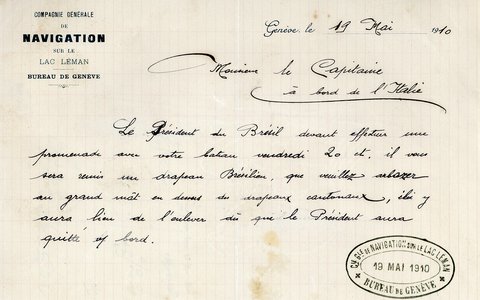 COMPAGNIE GÉNÉRALE
DE
NAVIGATION
SUR LE
LAC LÉMAN
BUREAU DE GENÈVE
Genève, le 19 Mai 1910
Monsieur le Capitaine
à bord de l'Italie
Le Président du Brésil devant effectuer une
promenade avec votre bateau vendredi 20 ct, il vous
sera remis un drapeau Brésilien, que veuillez arborer
au grand mât en dessus des drapeaux cantonaux, il y
aura lieu de l'enlever dès que le Président aura
quitté bord.
CIE GLE DE NAVIGATION SUR LE LAC LÉMAN
19 MAI 1910
BUREAU DE GENÈVE